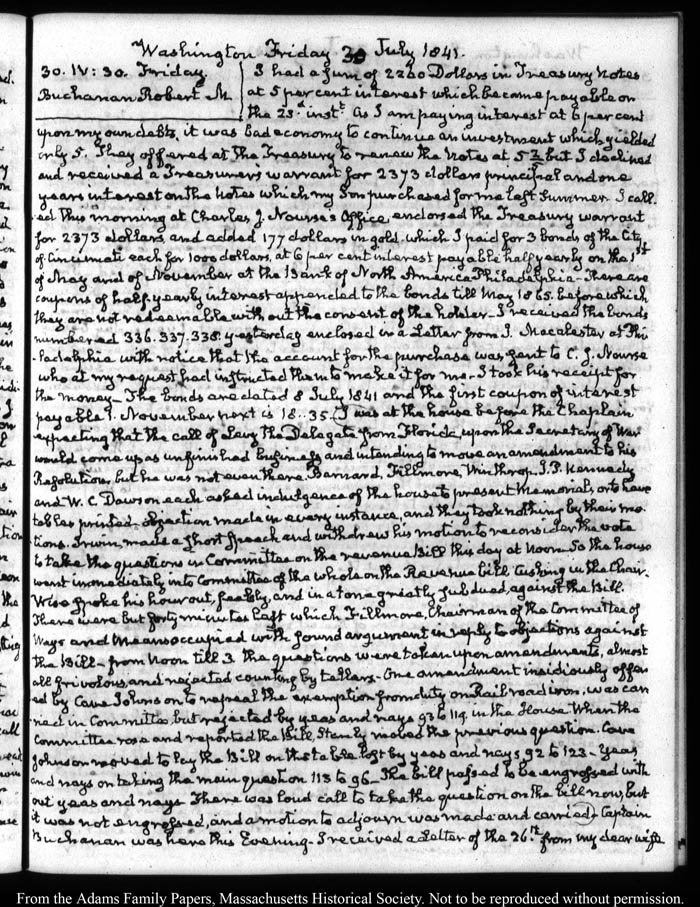 Washington Friday 30 July 1841.
30. IV: 30. Friday.
Buchanan Robert M
I had a sum of 2260 Dollars in Treasury Notes
at 5 per cent interest which became payable on
the 23.d inst.t As I am paying interest at 6 per cent
upon my own debts, it was bad economy to continue an investment which yielded
only 5. They offered at the Treasury to renew the Notes at 5 2/5 but I declined
and received a Treasurer's warrant for 2373 dollars principal and one
years interest on the Notes which my Son purchased for me last Summer. I call-
ed this morning at Charles J. Nourse's Office, endorsed the Treasury warrant
for 2373 dollars, and added 177 dollars in gold. which I paid for 3 bonds of the City
of Cincinnati each for 1000 dollars, at 6 per cent interest payable half yearly on the 1.st
of May and of November at the Bank of North America Philadelphia. There are
coupons of half-yearly interest appended to the bonds till May 1865. before which
they are not redeemable without the consent of the holder. I received the bonds
numbered 336. 337. 338. yesterday enclosed in a Letter from J. Macalester at Phi-
-ladelphia with notice that the account for the purchase was sent to C. J. Nourse
who at my request had instructed them to make it for me. I took his receipt for
the money_ The bonds are dated 8 July 1841 and the first coupon of interest
payable 1. November next is 18..35. I was at the house before the Chaplain
expecting that the call of Levy the Delegate from Florida, upon the Secretary of War
would come up as unfinished business and intending to move an amendment to his
Resolution, but he was not even there. Barnard, Fillmore, Winthrop, J. P. Kennedy
and W. C. Dawson each asked indulgence of the house to present Memorials, or to have
tables printed. objection made in every instance, and they took nothing by their mo-
tions. Irwin, made a short speech and withdrew his motion to reconsider the vote
to take the questions in Committee on the revenue Bill this day at Noon. So the house
went immediately into Committee of the whole on the Revenue bill Cushing in the Chair.
Wise spoke his hour out, feebly, and in a tone greatly subdued, against the Bill.
There were but forty minutes left which Fillmore, Chairman of the Committee of
Ways and Means occupied with sound argument in reply to objections against
the Bill_ from Noon till 3 the questions were taken upon amendments, almost
all frivolous, and rejected counting by tellers. One amendment insidiously offer-
ed by Cave Johnson to repeal the exemption from duty on Rail road iron, was car-
ried in Committee but rejected by yeas and nays 93 to 119. in the House. When the
Committee rose and reported the Bill, Stanly moved the previous question. Cave
Johnson moved to lay the Bill on the table, lost by yeas and nays 92 to 123_ Yeas
and nays on taking the main question 113 to 96_ The bill passed to be engrossed with
out yeas and nays There was loud call to take the question on the bill now, but
it was not engrossed, and a motion to adjourn was made and carried. Captain
Buchanan was here this Evening. I received a Letter of the 26.th from my dear wife
From the Adams Family Papers, Massachusetts Historical Society. Not to be reproduced without permission.